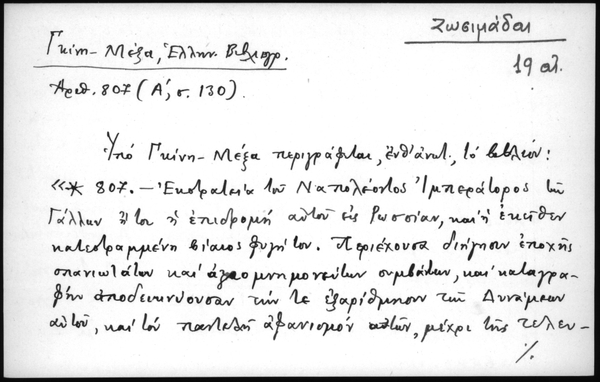 Ζωσιμάδαι
19 αι.
Γκίνη-Μέξα, Ελλην. Βιβλιογρ.
Αριθ. 807 (Α', σ. 130).
Υπό Γκίνη-Μέξα περιγράφεται, ένθ' ανωτ., το βιβλίον:
«* 807. – Εκστρατεία του Ναπολέοντος Ιμπεράτορος των
Γάλλων ήτοι η επιδρομή αυτού εις Ρωσσίαν, και η εκείθεν
κατεστραμμένη βίαιος φυγή του. Περιέχουσα διήγησιν εποχής
σπανιωτάτων και αξιομνημονεύτων συμβάντων, και καταγρα-
φήν αποδεικνύουσαν την τε εξαρίθμησιν των Δυνάμεων
αυτού, και τον παντελή αφανισμόν αυτών, μέχρι της τελευ-
./.